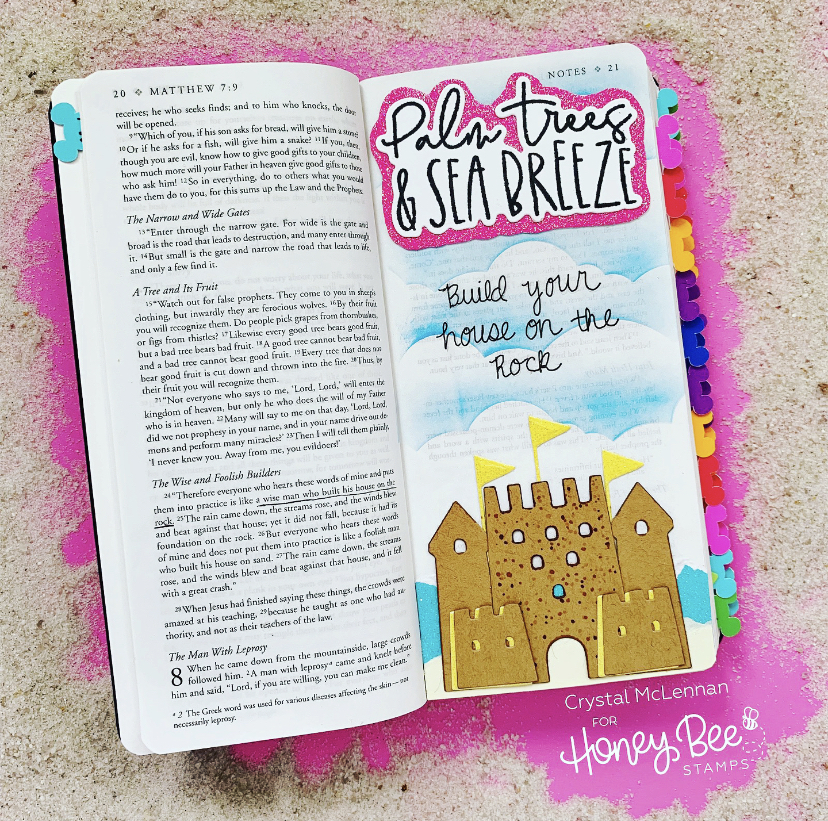 20 ❖ MATTHEW 7:9
receives; he who seeks finds; and to him who knocks, the door
will be opened.
9“Which of you, if his son asks for bread, will give him a stone?
10Or if he asks for a fish, will give him a snake? 11If you, then,
though you are evil, know how to give good gifts to your children,
how much more will your Father in heaven give good gifts to those
who ask him! 12So in everything, do to others what you would
have them do to you, for this sums up the Law and the Prophets.
The Narrow and Wide Gates
13“Enter through the narrow gate. For wide is the gate and
broad is the road that leads to destruction, and many enter through
it. 14But small is the gate and narrow the road that leads to life,
and only a few find it.
A Tree and Its Fruit
15“Watch out for false prophets. They come to you in sheep's
clothing, but inwardly they are ferocious wolves. 16By their fruit
you will recognize them. Do people pick grapes from thornbushes,
or figs from thistles? 17Likewise every good tree bears good fruit,
but a bad tree bears bad fruit. 18A good tree cannot bear bad fruit,
and a bad tree cannot bear good fruit. 19Every tree that does not
bear good fruit is cut down and thrown into the fire. 20Thus, by
their fruit you will recognize them.
21“Not everyone who says to me, ‘Lord, Lord,’ will enter the
kingdom of heaven, but only he who does the will of my Father
who is in heaven. 22Many will say to me on that day, ‘Lord, Lord,
did we not prophesy in your name, and in your name drive out de-
mons and perform many miracles?’ 23Then I will tell them plainly,
‘I never knew you. Away from me, you evildoers!’
The Wise and Foolish Builders
24“Therefore everyone who hears these words of mine and puts
them into practice is like a wise man who built his house on the
rock. 25The rain came down, the streams rose, and the winds blew
and beat against that house; yet it did not fall, because it had its
foundation on the rock. 26But everyone who hears these words
of mine and does not put them into practice is like a foolish man
who built his house on sand. 27The rain came down, the streams
rose, and the winds blew and beat against that house, and it fell
with a great crash.”
28When Jesus had finished saying these things, the crowds were
amazed at his teaching, 29because he taught as one who had au-
thority, and not as their teachers of the law.
The Man With Leprosy
8 When he came down from the mountainside, large crowds
followed him. 2A man with leprosya came and knelt before
him and said, “Lord, if you are willing, you can make me clean.”
a 2 The Greek word was used for various diseases affecting the skin—not
necessarily leprosy.
NOTES ❖ 21
Palm trees
& SEA BREEZE
Build your
house on the
Rock
Crystal McLennan
FOR
Honey Bee
STAMPS